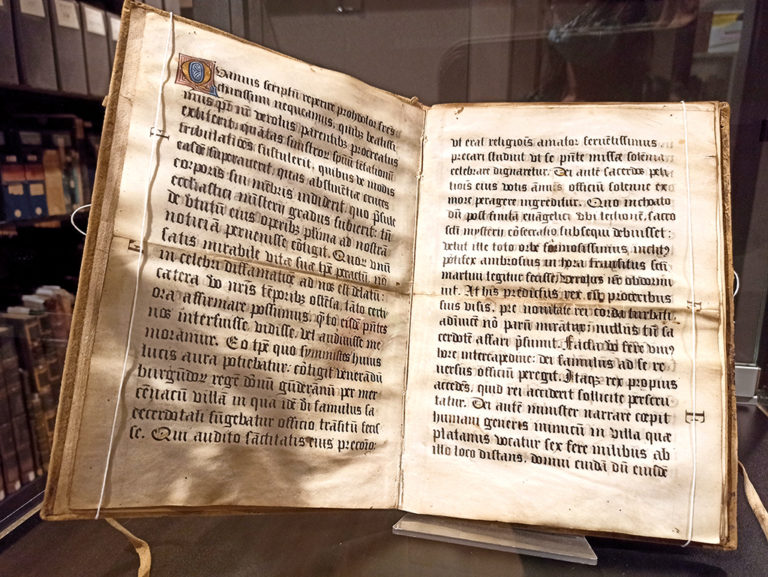 Quamuis scriptū reperire prohdolor frēs
charissimi nequeamus, quibus beatissi
mus vn̄ Verolus parētibꝫ procreatus
extiterit, quātas sinistrorꝫ spūū tētationū
tribulatiōes sustulerit, quibus ve modis
easdē superauerit, quas abstinētiæ cruces
corporis sui mēbris indiderit, quo p̄sule
ecclesiastici misterij gradus subierit: tn̄
de v̄tutū eius operibꝫ plima ad nostrā
noticiā peruenisse cōtigit. Quorꝫ vnū
satis mirabile vitæ suæ tp̄e peractū nō
in celebri diffamatiōe ad nos est delatū:
cætera vō nr̄is tēporibꝫ ostēsa, tāto certi
ora affirmare possumus, q̄to eisdē p̄ntes
nos interfuisse, vidisse, vel audiuisse me
moramur. Eo tp̄e quo symnistes huius
lucis aura potiebatur: cōtigit venerādū
burgūdorꝫ regē dōnū gūderānū per mer
cēnacū villā in qua idē dei famulus sa
cerdotali fūgebatur officio trāsitū fecis
se. Qui audito sāctitatis eius precōio:
vt erat religiōis amator feruētissimus
precari studuit vt se p̄nte missæ solemnia
celebrare dignaretur. Dei autē sacerdos peti
tiōis eius votis ānuēs officiū solenne ex
more peragere ingreditur. Quo inchoato
dū post finitā euāgelici vbi lectionē, sacro
scti mysterij cōsecratio subsequi debuisset:
velut ille toto orbe formosissimus, inclyt
pōtifex ambrosius in hora trāsitus scti
martini legitur fecisse, Verolus nr̄ obdormi
uit. At his predictus rex cū proceribus
suis visis, pre nouitate rei corda turbati,
adinuicē nō parū mirātur, nullus tn̄ sa
cerdotē affari p̄sumit. Facto vō fere vniꝰ
horæ intercapedine: dei famulus ad se re
uersus officiū peregit. Itaqꝫ rex propius
accedēs, quid rei acciderit sollicite perscru
tatur. Dei autē minister narrare cœpit
humani generis inimicū in villa quæ
platamis vocatur sex fere milibus ab
illo loco distans, domui cuiusdā dū eiusdē